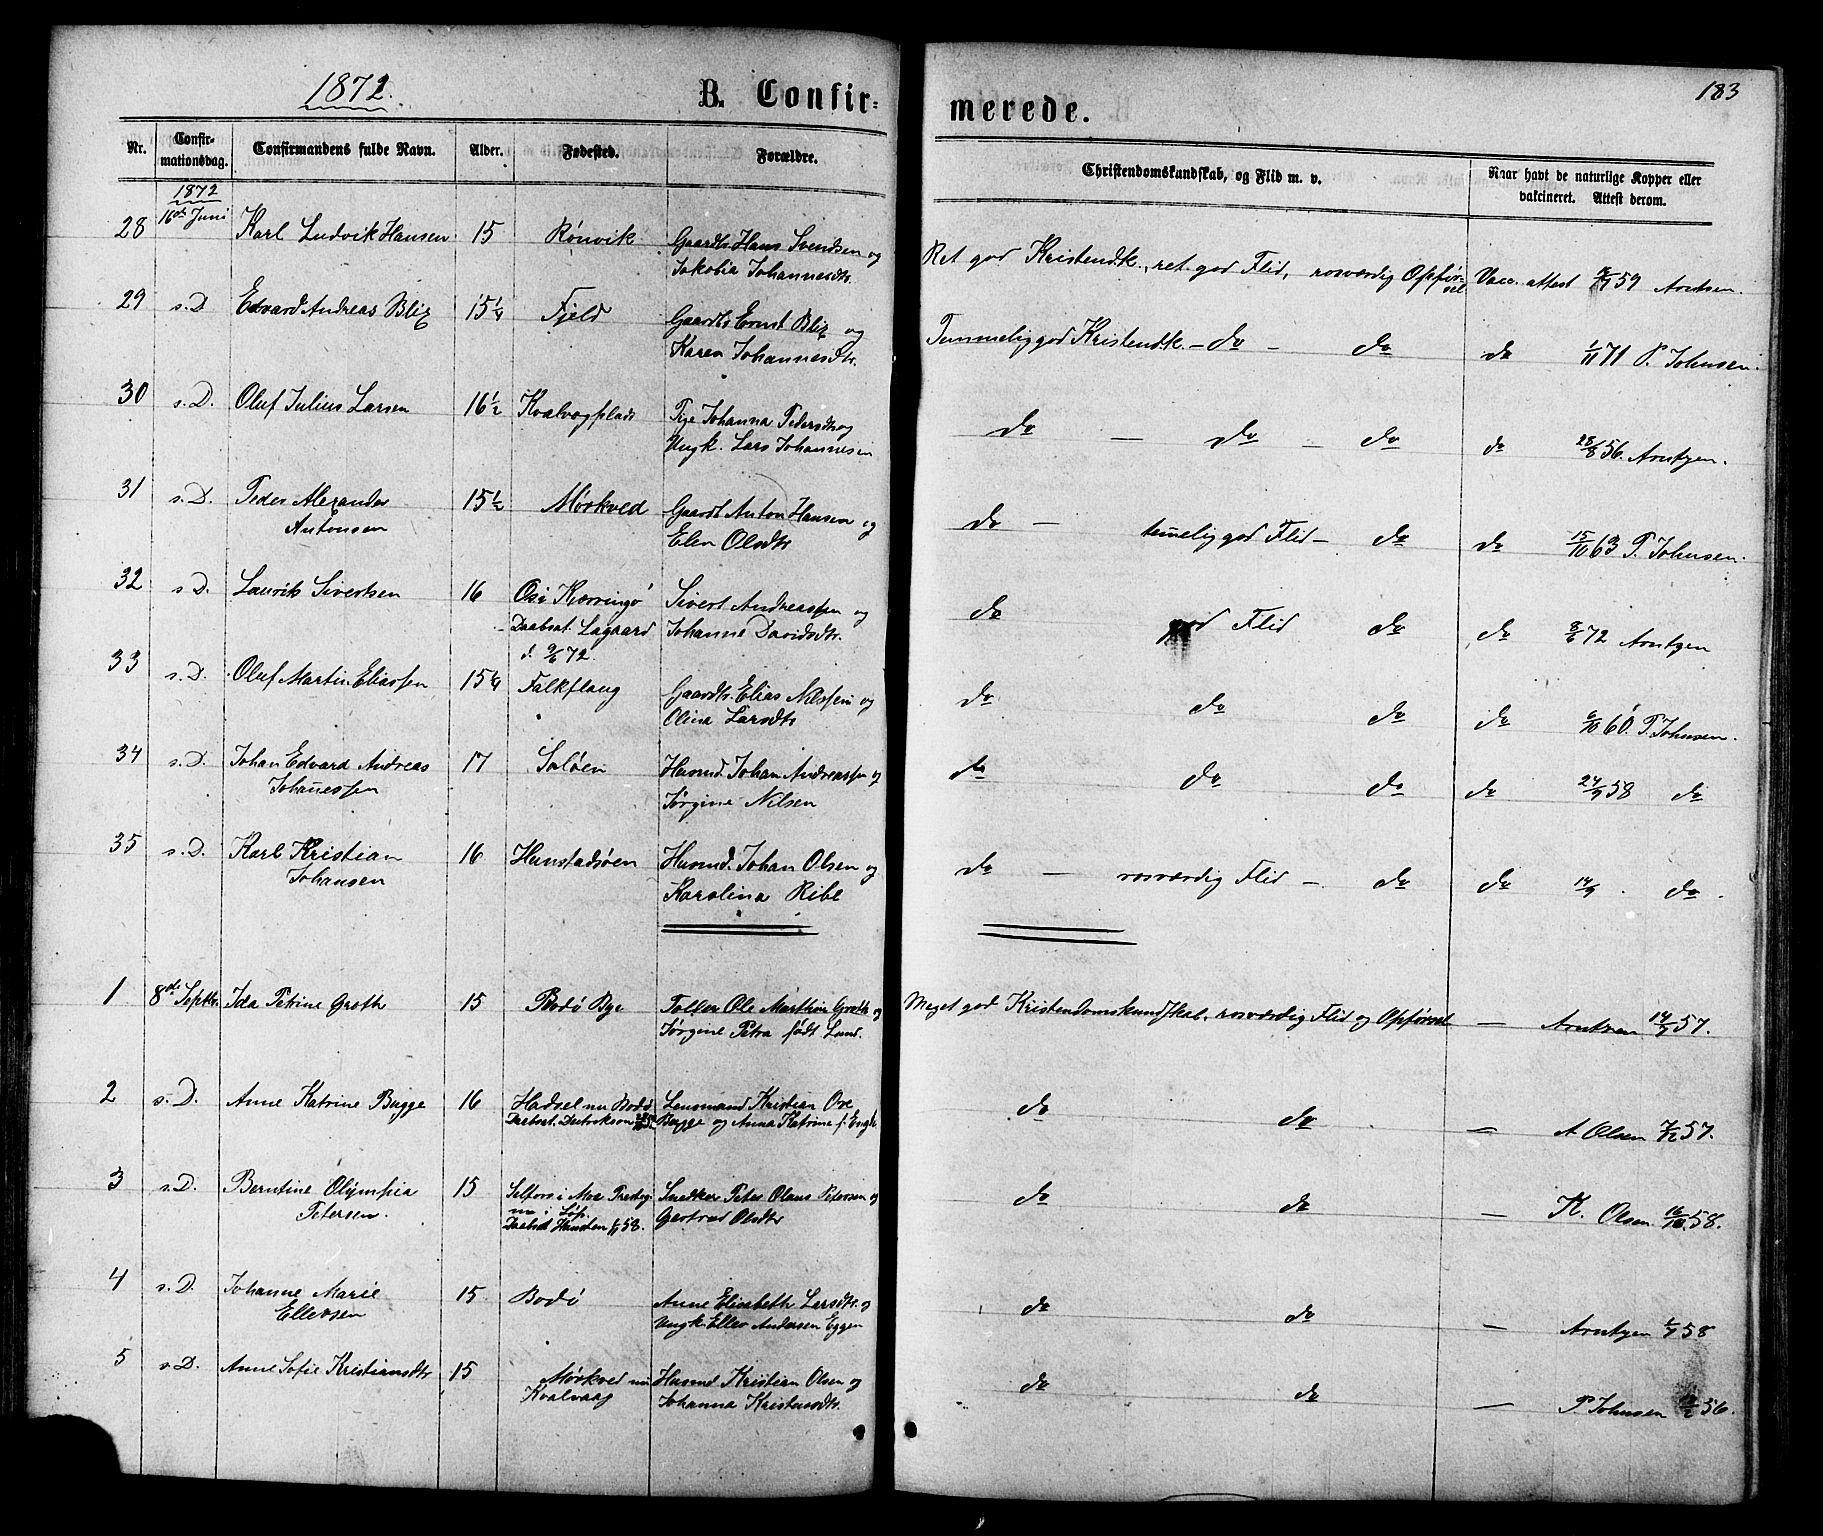 1872.
B. Confir-
merede.
183
Nr.
Confir-
mationsdag.
Confirmandens fulde Navn.
Alder.
Fødested.
Forældre.
Christendomskundskab, og Flid m. v.
Naar havt de naturlige Kopper eller
vakcineret. Attest derom.
1872
28 16de Juni Karl Ludvik Hansen 15 Rønvik Gaardbr. Hans Svendsen og
Jakobia Johannesdtr.
Ret god Kristendk., ret god Flid, rosværdig Opfør-
sel Vacc. attest 59 Arntzen.
29 s. D. Edvard Andreas Blix 15 1/4 Fjeld Gaardbr Ernst Blix og
Karen Johannesdtr.
Temmelig god Kristendk. - do - do do 1/11 71 P. Johnsen.
30 s. D. Oluf Julius Larsen 16 1/2 Kvalvogplads Pige Johanna Pedersdtr og
Ungk. Lars Johannesen
do - do - do do 28/8 56. Arntzen.
31 s. D. Peder Alexander
Antonsen
15 1/2 Mørkved Gaardb Anton Hansen og
Elen Olsdtr
do - temelig god Flid - do do 15/10 63 P. Johnsen.
32 s. D. Laurits Sivertsen 16 Os i Kjerringø
Daabsat. Lagaard
d. 9/6 72.
Sivert Andreassen og
Johanne Davidsdtr.
do god Flid do do 8/6 72 Arntzen
33 s. D. Oluf Martin Eliassen 15 1/4 Falkflaug Gaardbr. Elias Nilssen og
Olina Larsdtr
do do do do 6/10 60. P. Johnsen.
34 s. D. Johan Edvard Andreas
Johanessen
17 Saløen Husmd. Johan Andreassen og
Jørgine Nilsen
do do do do 24/9 58 do
35 s. D. Karl Kristian
Johansen
16 Hunstadsøen Husmd. Johan Olsen og
Karolina Ribe
do - rosværdig Flid - do do 14/9 . do.
1 8de Septbr. Ida Petrine Groth 15 Bodø Bye Toller Ole Marthin Groth og
Jørgine Petra født Lund.
Meget god Kristendomskundskab, rosværdig Flid og Opførsel - Arntzen 14/9 57.
2 s. D. Anne Katrine Bugge 16 Hadsel nu Bodø
Daabsat.
Lensmand Kristian Ove
Bugge og Anna Katrine f.
do do - A Olsen 7/12 57.
3 s. D. Berntine Olympia
Petersen.
15 Selfors i Mo Prestegj.
nu i
Daabsat 58.
Snedker Peter Olaus Petersen og
Gertrud Olsdtr
do do - K. Olsen 16/10 58.
4 s. D. Johanne Marie
Ellersen
15 Bodø Anne Elisabeth Larsdtr. og
Ungk. Eller Andersen Eggen
do do - Arntzen 58
5 s. D. Anne Sofie Kristiansdtr 15 Mørkved nu
Kvalvaag
Husmd Kristian Olsen og
Johanna Kristensdtr.
do do - P. Johnsen 56.